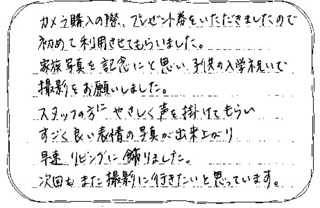 カメラ購入の際、プレゼント券をいただきましたので
初めて利用させてもらいました。
家族写真を記念にと思い、子供の入学祝いで
撮影をお願いしました。
スタッフの方に やさしく声を掛けてもらい
すごく良い表情の写真が出来上がり
早速 リビングに飾りました。
次回も また撮影に行きたいと思っています。